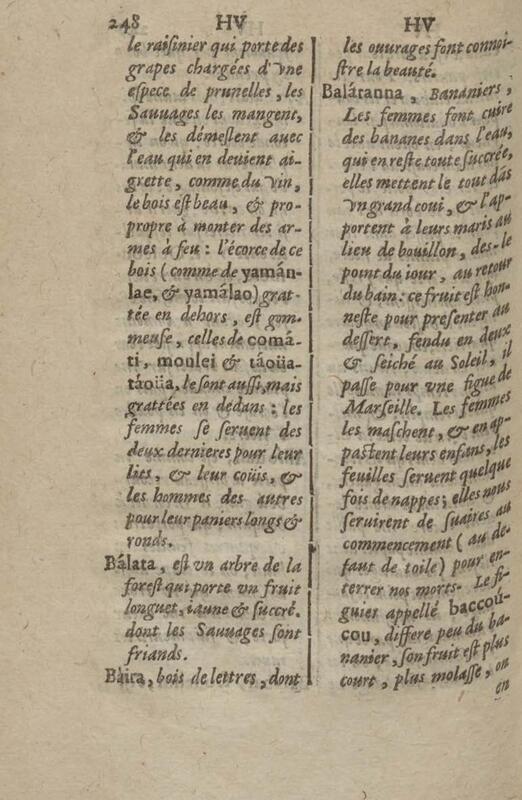 248 HV
le raisinier qui porte des
grapes chargées d'vne
espece de prunelles, les
Sauuages les mangent,
& les démeslent auec
l'eau qui en deuient ai-
grette, comme du vin,
le bois est beau, & pro-
propre à monter des ar-
mes à feu : l'écorce de ce
bois (comme de yamán-
lae, & yamálao) grat-
tée en dehors, est gom-
meuse, celles de comá-
ti, moulei & táoüa-
táoüa, le sont aussi, mais
grattées en dedans : les
femmes se seruent des
deux dernieres pour leur
lits, & leur coüis, &
les hommes des autres
pour leur paniers longs &
ronds.
Bálata, est vn arbre de la
forest qui porte vn fruit
longuet, iaune & succré.
dont les Sauuages sont
friands.
Baira, bois de lettres, dont
HV
les ouurages font connoi-
stre la beauté.
Balátanna, Bananiers,
Les femmes font cuire
des bananes dans l'eau,
qui en reste toute succrée,
elles mettent le tout dãs
vn grand coui, & l'ap-
portent à leurs maris au
lieu de bouillon, des-le
point du iour, au retour
du bain : ce fruit est hon-
neste pour presenter au
dessert, fendu en deux
& seiché au Soleil, il
passe pour vne figue de
Marseille. Les femmes
les maschent, & en ap-
pastent leurs enfans, les
feuilles seruent quelque
fois de nappes; elles nous
seruirent de suaires au
commencement (au de-
faut de toile) pour en-
terrer nos morts. Le fi-
guier appellé baccoú-
cou, differe peu du ba-
nanier, son fruit est plus
court, plus molasse, on
en